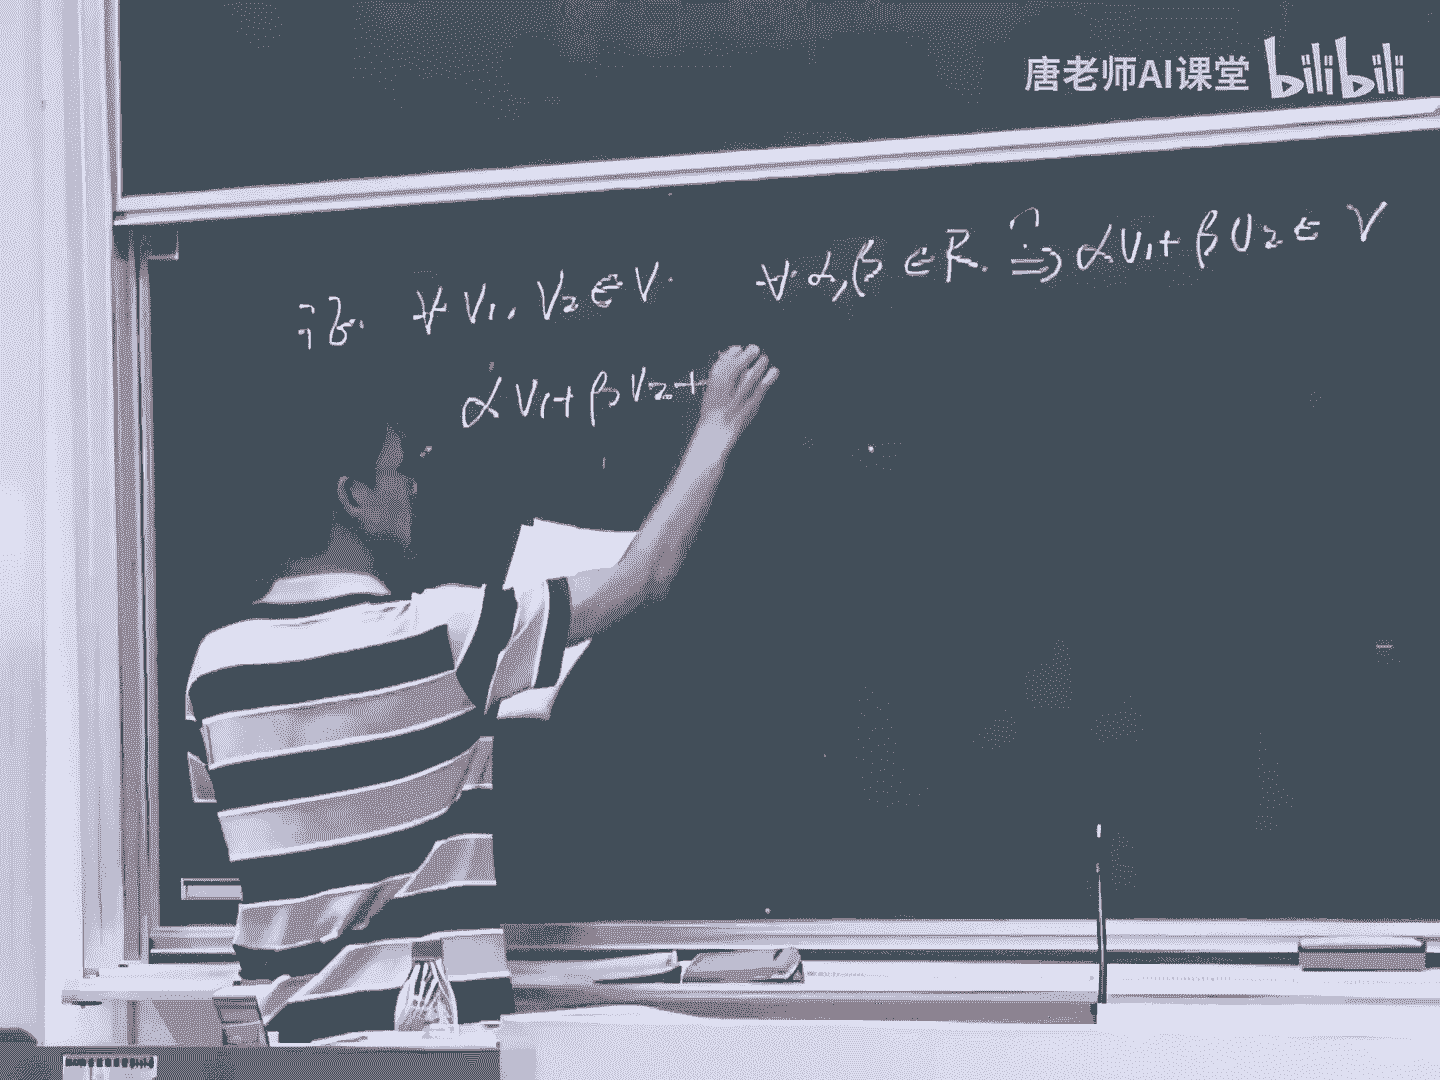 唐老师AI课堂 bilibili
证. ∀ V₁, V₂ ∈ V. ∀ α, β ∈ R. ⇒ αV₁ + βV₂ ∈ V
αV₁ + βV₂ +